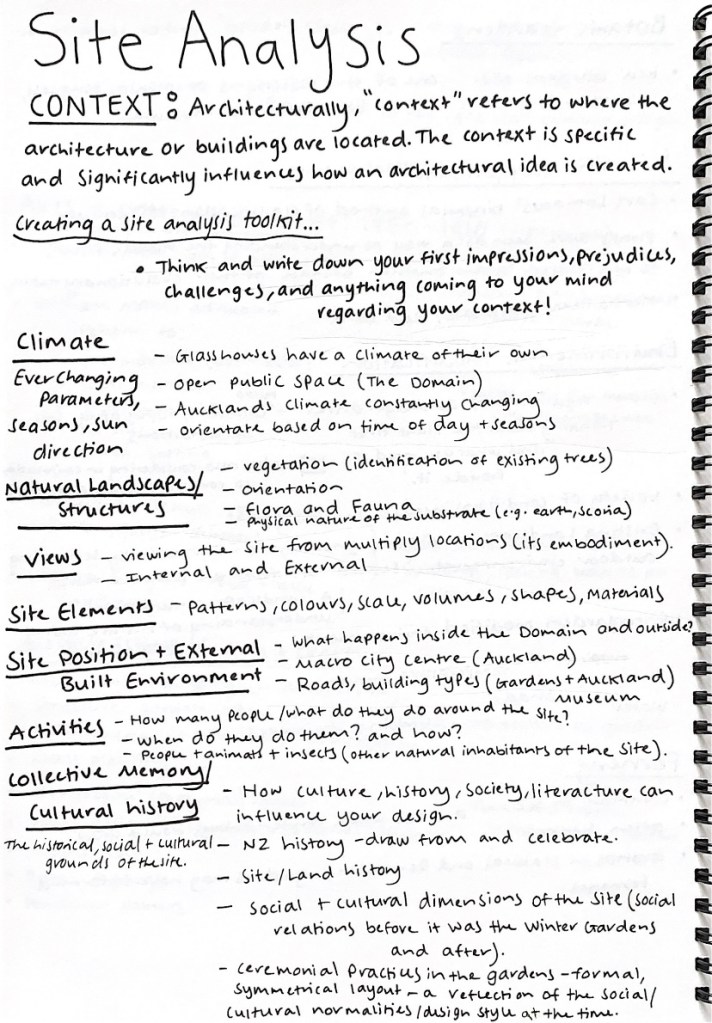 Site Analysis
CONTEXT: Architecturally, "context" refers to where the
architecture or buildings are located. The context is specific
and significantly influences how an architectural idea is created.
Creating a site analysis toolkit...
• Think and write down your first impressions, prejudices,
challenges, and anything coming to your mind
regarding your context!
Climate
Ever Changing
Parameters,
seasons, sun
direction
- Glasshouses have a climate of their own
- Open public space (The Domain)
- Aucklands climate constantly changing
- orientate based on time of day + seasons
Natural Landscapes/
Structures
- vegetation (identification of existing trees)
- orientation
- Flora and Fauna
- Physical nature of the substrate (e.g. earth, scoria)
Views
- viewing the site from multiply locations (its embodiment).
- Internal and External
Site Elements - Patterns, colours, scale, volumes, shapes, materials
Site Position + External
Built Environment
- What happens inside the Domain and ourside?
- Macro city centre (Auckland)
- Roads, building types (Gardens + Auckland)
Museum
Activities
- How many people/what do they do around the site?
- when do they do them? and how?
- People + animals + insects (other natural inhabitants of the site).
Collective Memory/
Cultural history
The historical, social + cultural
grounds of the site.
- How culture, history, society, literacture can
influence your design.
- NZ history - draw from and celebrate.
- Site/Land history
- Social + cultural dimensions of the site (social
relations before it was the Winter Gardens
and after).
- Ceremonial Practices in the gardens - formal,
symmetrical layout - a reflection of the social/
cultural normalities/design style at the time.